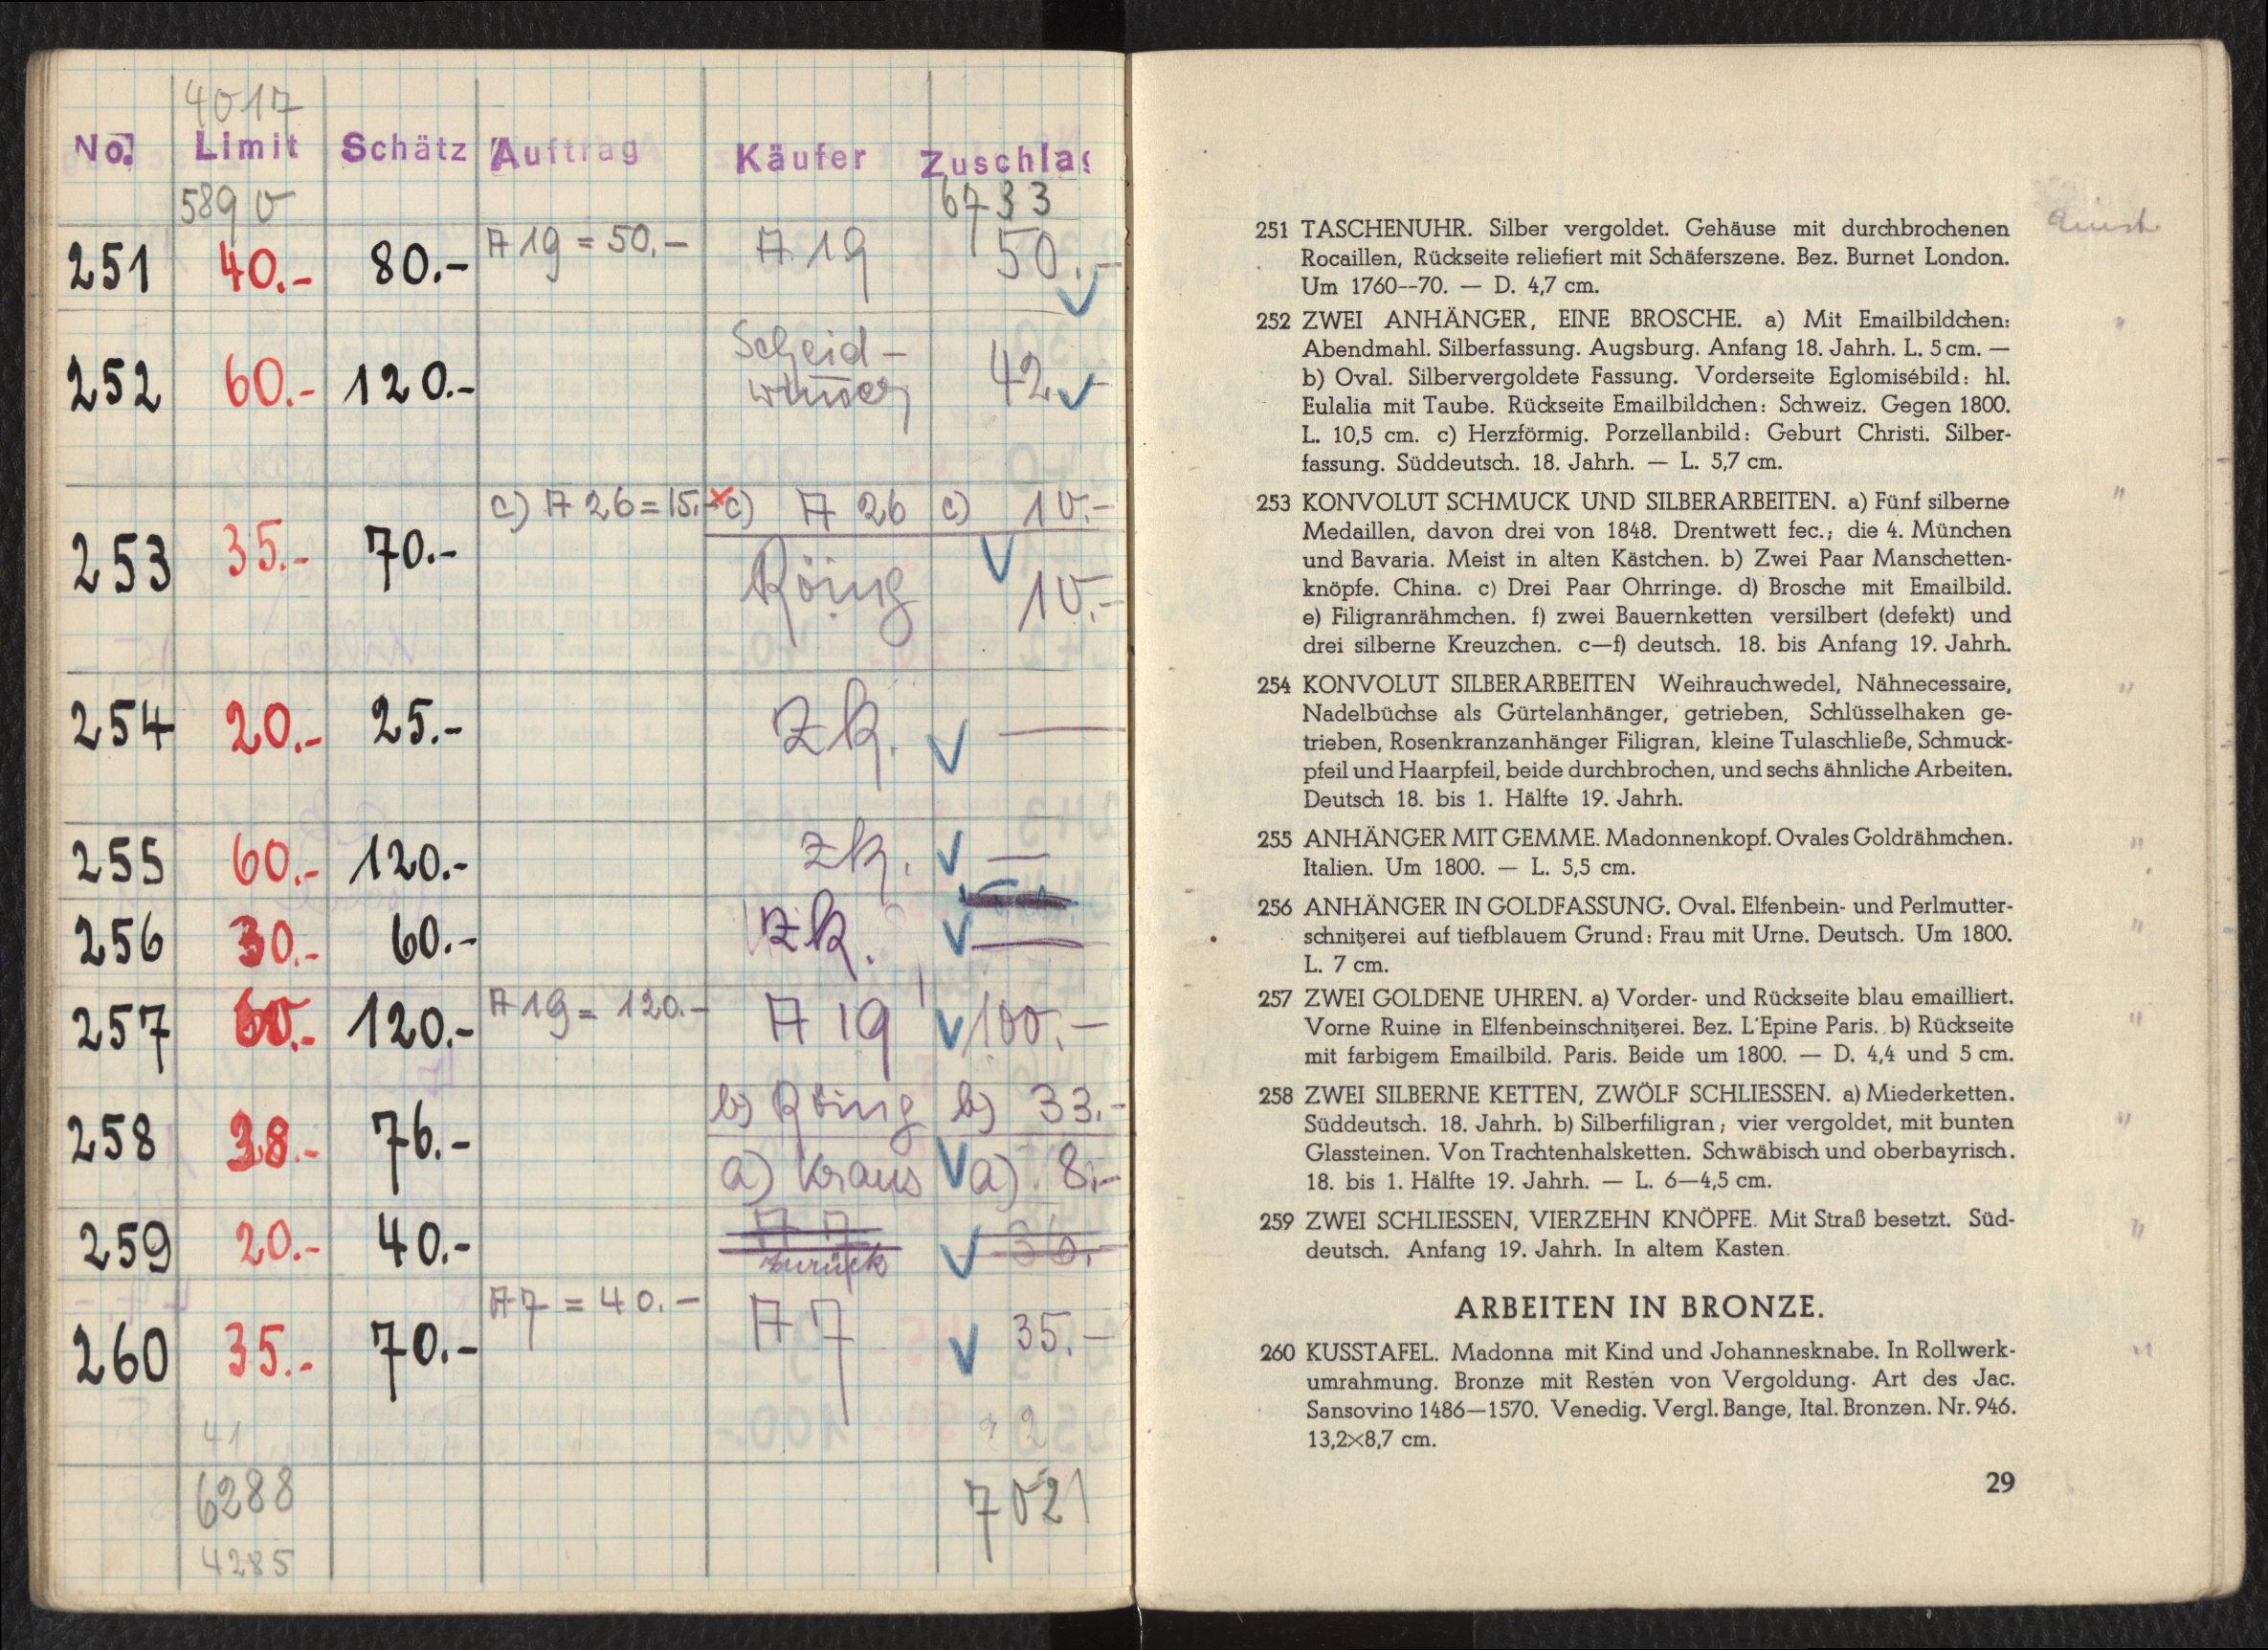 4017
No. Limit Schätz Auftrag Käufer Zuschlag
5890 6733
251 40.- 80.- A 19 = 50.- A 19 50.-
252 60.- 120.- Scheid- 42.-
253 35.- 70.- c) A 26 = 15.- c) A 26 c) 10.-
Röing 10.-
254 20.- 25.- zk. —
255 60.- 120.- zk. —
256 30.- 60.- zk. —
257 60.- 120.- A 19 = 120.- A 19 100.-
258 38.- 76.- b) Röing b) 33.-
a) Kraus a) 8.-
259 20.- 40.- A 7 36.-
zurück
260 35.- 70.- A 7 = 40.- A 7 35.-
41
6288 7021
4285
251 TASCHENUHR. Silber vergoldet. Gehäuse mit durchbrochenen
Rocaillen, Rückseite reliefiert mit Schäferszene. Bez. Burnet London.
Um 1760--70. — D. 4,7 cm.
252 ZWEI ANHÄNGER, EINE BROSCHE. a) Mit Emailbildchen:
Abendmahl. Silberfassung. Augsburg. Anfang 18. Jahrh. L. 5 cm. —
b) Oval. Silbervergoldete Fassung. Vorderseite Eglomisébild: hl.
Eulalia mit Taube. Rückseite Emailbildchen: Schweiz. Gegen 1800.
L. 10,5 cm. c) Herzförmig. Porzellanbild: Geburt Christi. Silber-
fassung. Süddeutsch. 18. Jahrh. — L. 5,7 cm.
253 KONVOLUT SCHMUCK UND SILBERARBEITEN. a) Fünf silberne
Medaillen, davon drei von 1848. Drentwett fec.; die 4. München
und Bavaria. Meist in alten Kästchen. b) Zwei Paar Manschetten-
knöpfe. China. c) Drei Paar Ohrringe. d) Brosche mit Emailbild.
e) Filigranrähmchen. f) zwei Bauernketten versilbert (defekt) und
drei silberne Kreuzchen. c—f) deutsch. 18. bis Anfang 19. Jahrh.
254 KONVOLUT SILBERARBEITEN Weihrauchwedel, Nähnecessaire,
Nadelbüchse als Gürtelanhänger, getrieben, Schlüsselhaken ge-
trieben, Rosenkranzanhänger Filigran, kleine Tulaschließe, Schmuck-
pfeil und Haarpfeil, beide durchbrochen, und sechs ähnliche Arbeiten.
Deutsch 18. bis 1. Hälfte 19. Jahrh.
255 ANHÄNGER MIT GEMME. Madonnenkopf. Ovales Goldrähmchen.
Italien. Um 1800. — L. 5,5 cm.
256 ANHÄNGER IN GOLDFASSUNG. Oval. Elfenbein- und Perlmutter-
schnitzerei auf tiefblauem Grund: Frau mit Urne. Deutsch. Um 1800.
L. 7 cm.
257 ZWEI GOLDENE UHREN. a) Vorder- und Rückseite blau emailliert.
Vorne Ruine in Elfenbeinschnitzerei. Bez. L'Epine Paris. b) Rückseite
mit farbigem Emailbild. Paris. Beide um 1800. — D. 4,4 und 5 cm.
258 ZWEI SILBERNE KETTEN, ZWÖLF SCHLIESSEN. a) Miederketten.
Süddeutsch. 18. Jahrh. b) Silberfiligran; vier vergoldet, mit bunten
Glassteinen. Von Trachtenhalsketten. Schwäbisch und oberbayrisch.
18. bis 1. Hälfte 19. Jahrh. — L. 6—4,5 cm.
259 ZWEI SCHLIESSEN, VIERZEHN KNÖPFE. Mit Straß besetzt. Süd-
deutsch. Anfang 19. Jahrh. In altem Kasten.
ARBEITEN IN BRONZE.
260 KUSSTAFEL. Madonna mit Kind und Johannesknabe. In Rollwerk-
umrahmung. Bronze mit Resten von Vergoldung. Art des Jac.
Sansovino 1486—1570. Venedig. Vergl. Bange, Ital. Bronzen. Nr. 946.
13,2×8,7 cm.
29